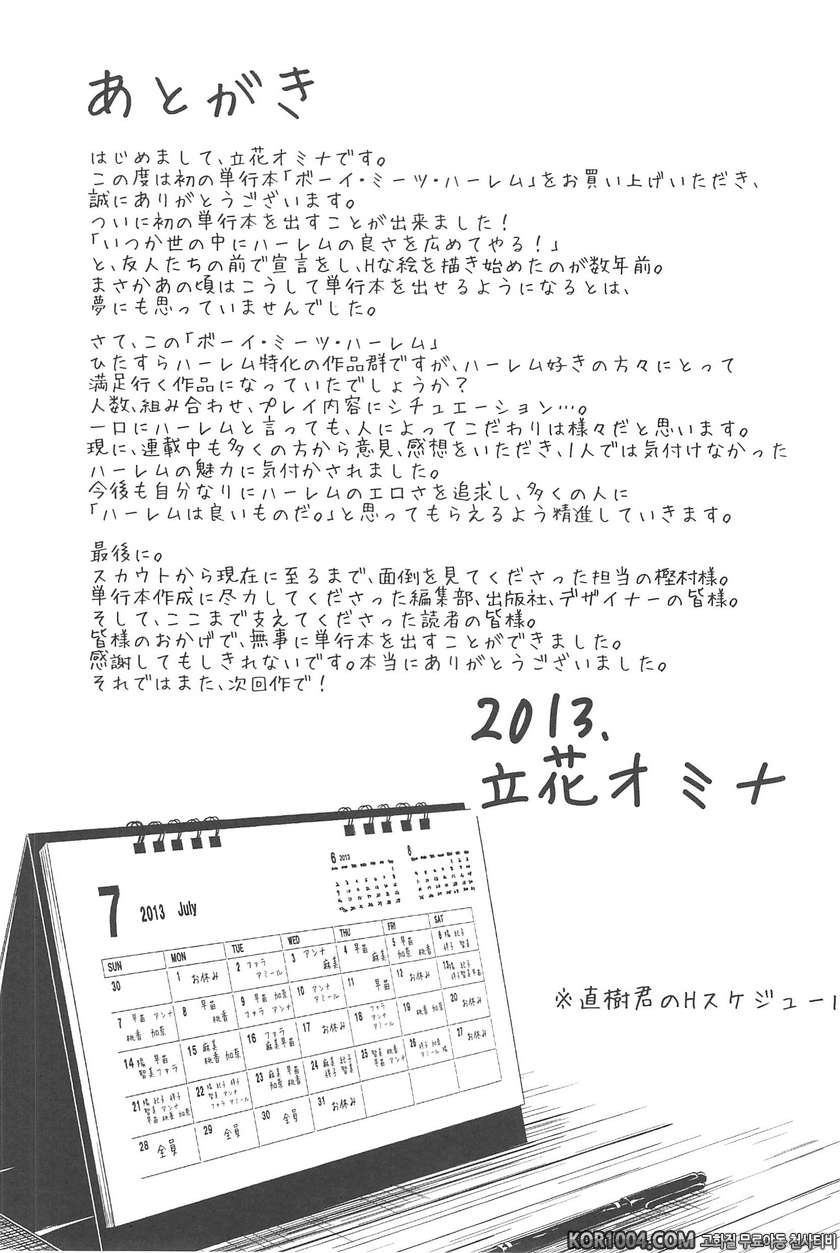 あとがき
はじめまして、立花オミナです。
この度は初の単行本「ボーイ・ミーツ・ハーレム」をお買い上げいただき、
誠にありがとうございます。
ついに初の単行本を出すことが出来ました！
「いつか世の中にハーレムの良さを広めてやる！」
と、友人たちの前で宣言をし、Hな絵を描き始めたのが数年前。
まさかあの頃はこうして単行本を出せるようになるとは、
夢にも思っていませんでした。
さて、この「ボーイ・ミーツ・ハーレム」
ひたすらハーレム特化の作品群ですが、ハーレム好きの方々にとって
満足行く作品になっていたでしょうか？
人数、組み合わせ、プレイ内容にシチュエーション…。
一口にハーレムと言っても、人によってこだわりは様々だと思います。
現に、連載中も多くの方から意見、感想をいただき、1人では気付けなかった
ハーレムの魅力に気付かされました。
今後も自分なりにハーレムのエロさを追求し、多くの人に
「ハーレムは良いものだ。」と思ってもらえるよう精進していきます。
最後に。
スカウトから現在に至るまで、面倒を見てくださった担当の樫村様。
単行本作成に尽力してくださった編集部、出版社、デザイナーの皆様。
そして、ここまで支えてくださった読者の皆様。
皆様のおかげで、無事に単行本を出すことができました。
感謝してもしきれないです。本当にありがとうございました。
それではまた、次回作で！
2013.
立花オミナ
6 2013
8
7 2013 July
SUN MON TUE WED THU FRI SAT
30 1 お休み 2 ファラ アミール 3 アンナ 麻美 4 早苗 5 早苗 桃香 6
7 早苗 アンナ 桃香 加奈 8 早苗 桃香 9 早苗 加奈 ファラ アンナ 10 アンナ アミール 11 早苗 12 お休み 13
14 早苗 智美 ファラ 15 麻美 桃香 加奈 16 ファラ 麻美 早苗 17 お休み 18 ファラ アンナ アミール 19 桃香 加奈 20 お休み
21 22 23 麻美 早苗 加奈 桃香 24 25 26 27 お休み
28 全員 29 全員 30 全員 31 お休み
※直樹君のHスケジュール
KOR1004.COM 고화질 무료야동 천사티비